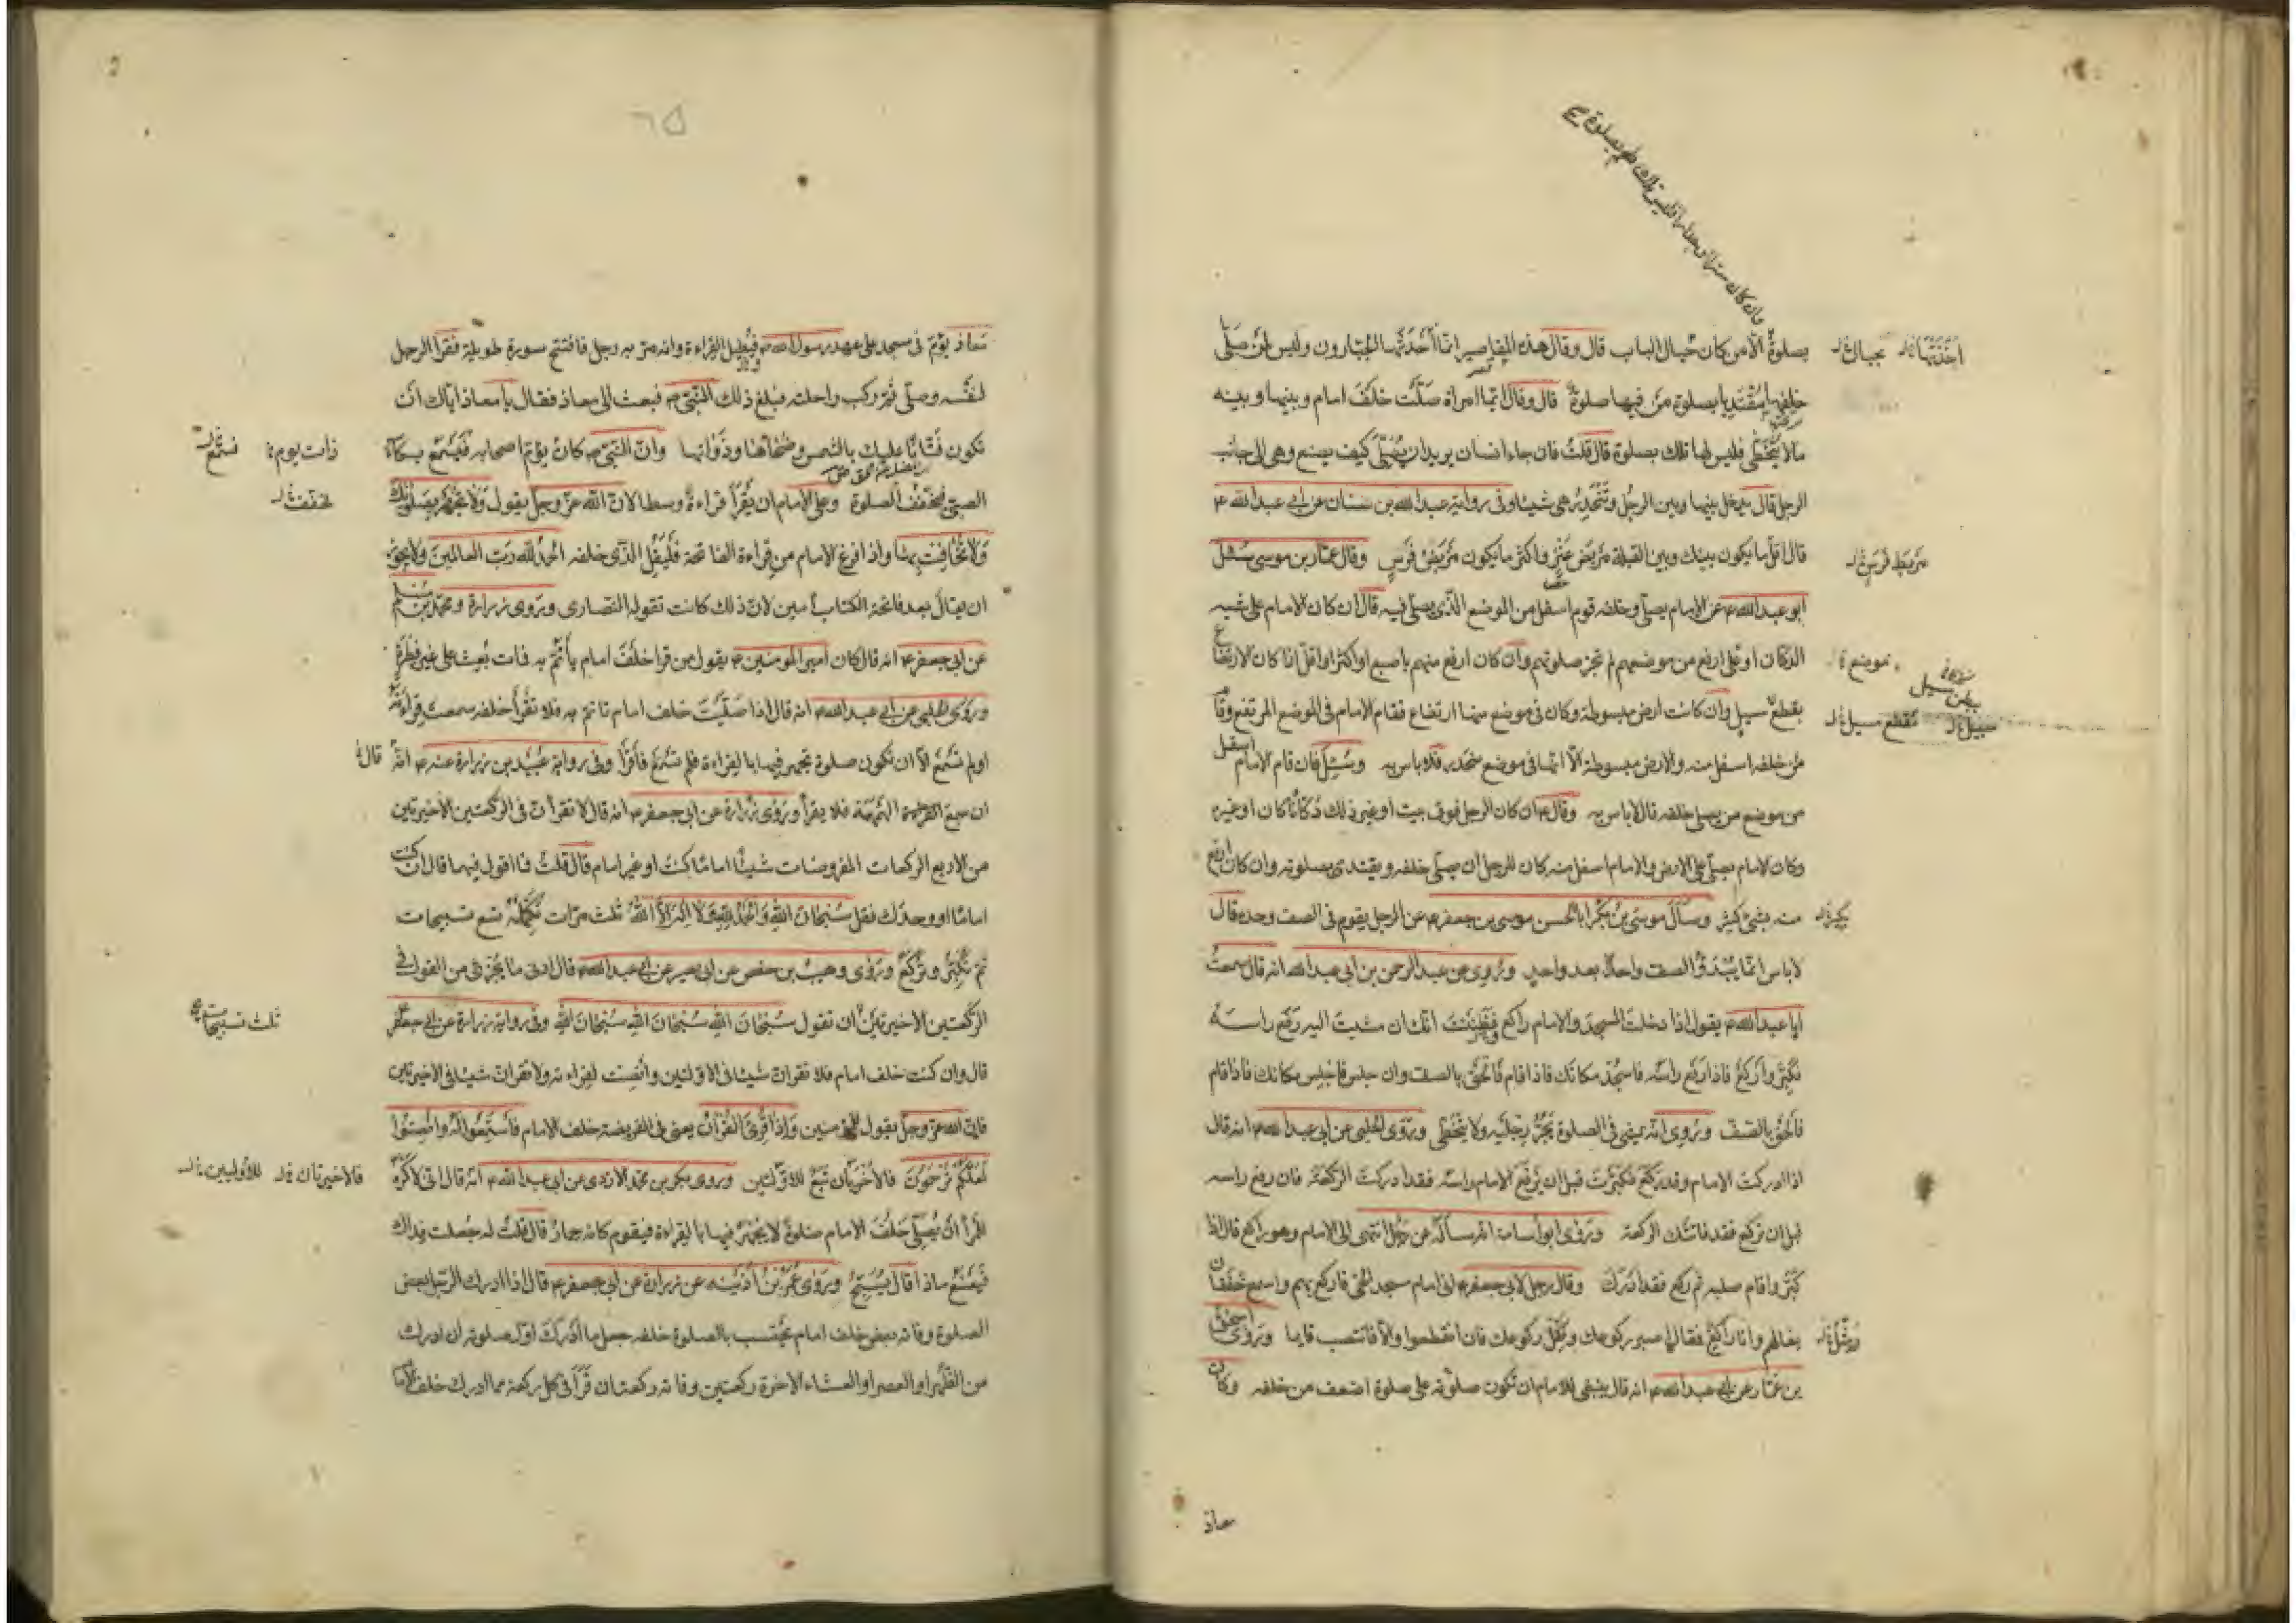 بصلوةٌ الّا من كان حيال الباب قال وقال هذه المقاصير انما أحدثها الجبّارون وليس لمن صلّى
خلفها مقتديا بصلوة من فيها صلوة قال وقال ايّما امراة صلّت خلف امام وبينها وبينه
مالا يتخطّى فليس لها تلك بصلوة قال قلت فان جاء انسان يريد ان يصلّى كيف يصنع وهى الى جانب
الرجل قال يدخل بينها وبين الرجل وتنحدر هى شيئا وفى رواية عبد الله بن سنان عن ابى عبد الله ع
قال اقلّ ما يكون بينك وبين القبلة مربض عنز واكثر ما يكون مربض فرس وقال عمّار بن موسى سئل
ابو عبد الله ع عن الامام يصلّى وخلفه قوم اسفل من الموضع الذى يصلّى فيه قال ان كان الامام على شبه
الدكان او على ارفع من موضعهم لم تجز صلوتهم وان كان ارفع منهم باصبع او اكثر او اقل اذا كان الارتفاع
بقطع سيل وان كانت ارض مبسوطة وكان فى موضع منها ارتفاع فقام الامام فى الموضع المرتفع وقام
من خلفه اسفل منه والارض مبسوطة الّا انها فى موضع منحدر فلا باس به وسئل فان قام الامام اسفل
من موضع من يصلى خلفه قال لا باس به وقال ع ان كان الرجل فوق بيت او غير ذلك دكانا كان او غيره
وكان الامام يصلّى على الارض والامام اسفل منه كان للرجل ان يصلّى خلفه ويقتدى بصلوته وان كان ارفع
منه بشئ كثير وسأل موسى بن بكر ابا الحسن موسى بن جعفر ع عن الرجل يقوم فى الصف وحده قال
لا باس انما يبدؤ الصف واحدا بعد واحد وروى عن عبد الرحمن بن ابى عبد الله انه قال سمعت
ابا عبد الله ع يقول اذا دخلت المسجد والامام راكع فظننت انك ان مشيت اليه رفع راسه
فكبّر واركع فاذا رفع راسه فاسجد مكانك فاذا قام فالحق بالصف وان جلس فاجلس مكانك فاذا قام
فالحق بالصف وروى انه يمشى فى الصلوة يجرّ رجليه ولا يتخطّى وروى الحلبى عن ابى عبد الله ع انه قال
اذا ادركت الامام وقد ركع فكبّرت قبل ان يرفع الامام راسه فقد ادركت الركعة فان رفع راسه
قبل ان تركع فقد فاتتك الركعة وروى ابو اسامة انه سأله عن رجل انتهى الى الامام وهو راكع قال اذا
كبّر واقام صلبه ثم ركع فقد ادرك وقال رجل لابى جعفر ع انى امام مسجد الحىّ فاركع بهم واسمع خفقان
نعالهم وانا راكع فقال اصبر ركوعك ومثل ركوعك فان انقطعوا والّا فانتصب قايما وروى اسحق
بن عمّار عن ابى عبد الله ع انه قال ينبغى للامام ان تكون صلوته على صلوة اضعف من خلفه وكان
معاذ
اخذتها
بحيال
مربط فرس
موضع
بطن مسيل
بقطع مسيل
سبيل
معاذ يؤمّ فى مسجد على عهد رسول الله ص فيطيل القراءة وانه مرّ به رجل فافتتح سورة طويلة فقرا الرجل
لنفسه وصلّى ثم ركب راحلته فبلغ ذلك النبى ص فبعث الى معاذ فقال يا معاذ اياك ان
تكون فتّانا عليك بالشمس وضحاها وذواتها وانّ النبى ص كان يؤمّ اصحابه فيسمع بكاء
الصبى فيخفف الصلوة وعلى الامام ان يقرأ قراءة وسطا لانّ الله عزّ وجلّ يقول ولا تجهر بصلوتك
ولا تخافت بها واذا فرغ الامام من قراءة الفاتحة فليقل الذى خلفه الحمد لله ربّ العالمين ولا يجوز
ان يقال بعد فاتحة الكتاب آمين لانّ ذلك كانت تقوله النصارى وروى زرارة ومحمد بن مسلم
عن ابى جعفر ع انه قال كان امير المومنين ع يقول من قرا خلف امام يأتمّ به فمات بعث على غير فطرة
وروى الحلبى عن ابى عبد الله ع انه قال اذا صلّيت خلف امام تاتم به فلا تقرأ خلفه سمعت قراءته
او لم تسمع الّا ان تكون صلوة تجهر فيها بالقراءة فلم تسمع فاقرأ وفى رواية عبيد بن زرارة عنه ع انّه قال
ان سمع الهمهمة فلا يقرأ وروى زرارة عن ابى جعفر ع انه قال لا تقرأنّ فى الركعتين الاخيرتين
من الاربع الركعات المفروضات شيئا اماما كنت او غير امام قال قلت فما اقول فيهما قال ان كنت
اماما او وحدك فقل سبحان الله والحمد لله ولا اله الّا الله ثلث مرّات تكمّله تسع تسبيحات
ثم تكبّر وتركع وروى وهيب بن حفص عن ابى بصير عن ابى عبد الله ع قال ادنى ما يجزى من القول فى
الركعتين الاخيرتين ان تقول سبحان الله سبحان الله سبحان الله وفى رواية زرارة عن ابى جعفر
قال وان كنت خلف امام فلا تقرأن شيئا فى الاوّلتين وانصت لقراءته ولا تقرأن شيئا فى الاخيرتين
فانّ الله عزّ وجلّ يقول للمؤمنين واذا قرئ القران يعنى فى الفريضة خلف الامام فاستمعوا له وانصتوا
لعلّكم ترحمون فالاخريان تبع للاوّلتين وروى بكر بن محمد الازدى عن ابى عبد الله ع انّه قال انى لاكره
للمرأ ان يصلّى خلف الامام صلوة لا يجهر فيها بالقراءة فيقوم كانه حمار قال قلت له جعلت فداك
فيصنع ماذا قال يسبّح وروى عمر بن اذينه عن زرارة عن ابى جعفر ع قال اذا ادرك الرّجل بعض
الصلوة وفاته بعض خلف امام يحتسب بالصلوة خلفه جعل ما ادرك اوّل صلوته ان ادرك
من الظهر او العصر او العشاء الاخرة ركعتين وفاته ركعتان قرأ فى كل ركعة مما ادرك خلف الامام
ذات يوم
فسمع
فخفف
ثلث تسبيحات
فالاخيرتان
للاوليين